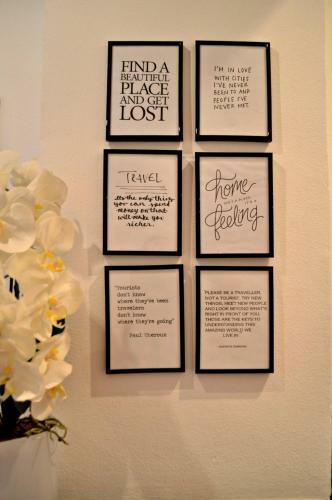 FIND A
BEAUTIFUL
PLACE
AND GET
LOST
I'M IN LOVE
WITH CITIES
I'VE NEVER
BEEN TO AND
PEOPLE I'VE
NEVER MET.
TRAVEL
its the only thing
you can spend
money on that
will make you
richer.
home
NOT A PLACE
IT'S A
feeling
"Tourists
don't know
where they've been
travelers
don't know
where they're going"
Paul Theroux
PLEASE BE A TRAVELLER,
NOT A TOURIST. TRY NEW
THINGS, MEET NEW PEOPLE
AND LOOK BEYOND WHAT'S
RIGHT IN FRONT OF YOU.
THOSE ARE THE KEYS TO
UNDERSTANDING THIS
AMAZING WORLD WE
LIVE IN